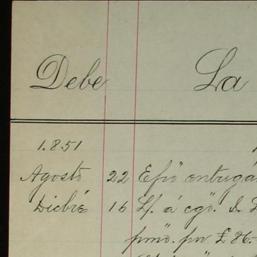 Debe La
1.851
Agosto 22 Efvo entregá
Dicbre 16 L/. á cgo. d.
pmo. pr £ 86.